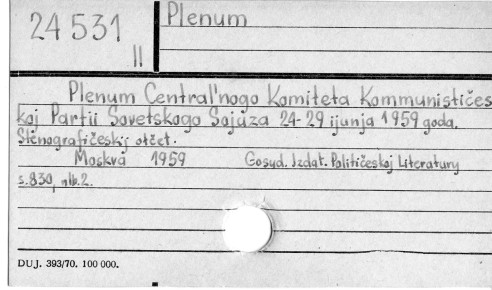 24 531
II
Plenum
Plenum Central'nogo Komiteta Kommunističes
koj Partii Sovetskogo Sojuza 24-29 ijunja 1959 goda.
Stenografičeskij otčet.
Moskva 1959 Gosud. Izdat. Političeskoj Literatury
s.830, nlb.2.
DUJ. 393/70. 100 000.